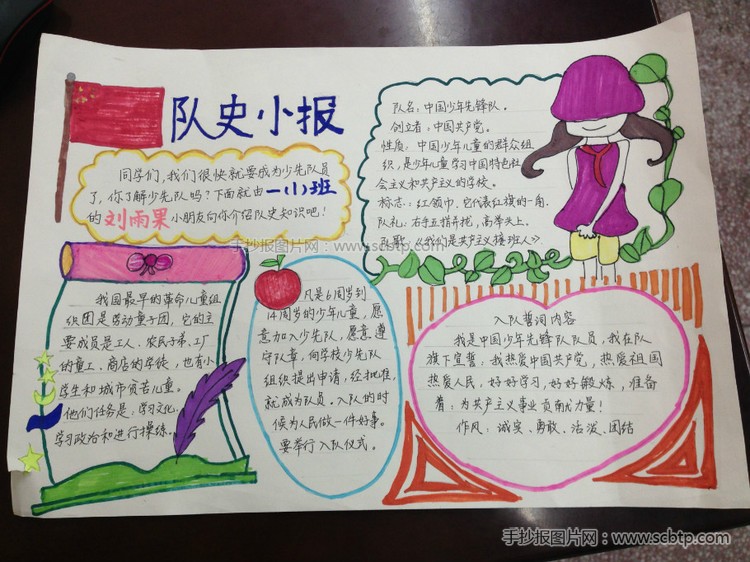 队史小报
同学们，我们很快就要成为少先队员
了，你了解少先队吗？下面就由一（1）班
的刘雨果小朋友向你介绍队史知识吧！
队名：中国少年先锋队。
创立者：中国共产党。
性质：中国少年儿童的群众组
织，是少年儿童学习中国特色社
会主义和共产主义的学校。
标志：红领巾，它代表红旗的一角.
队礼：右手五指并拢，高举头上.
队歌：《我们是共产主义接班人》.
手抄报图片网：www.scbtp.com
我国最早的革命儿童组
织团是劳动童子团，它的主
要成员是工人、农民子弟、工厂
的童工，商店的学徒，也有小
学生和城市贫苦儿童。
他们任务是：学习文化、
学习政治和进行操练.
凡是6周岁到
14周岁的少年儿童，愿
意加入少先队，愿意遵
守队章，向学校少先队
组织提出申请，经批准，
就成为队员。入队的时
候为人民做一件好事。
要举行入队仪式。
入队誓词内容
我是中国少年先锋队队员，我在队
旗下宣誓：我热爱中国共产党，热爱祖国
热爱人民，好好学习，好好锻炼，准备
着：为共产主义事业贡献力量！
作风：诚实、勇敢、活泼、团结
手抄报图片网：www.scbtp.com